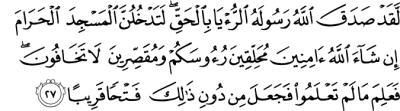 لَّقَدْ صَدَقَ ٱللَّهُ رَسُولَهُ ٱلرُّءْيَا بِٱلْحَقِّ ۖ لَتَدْخُلُنَّ ٱلْمَسْجِدَ ٱلْحَرَامَ
إِن شَآءَ ٱللَّهُ ءَامِنِينَ مُحَلِّقِينَ رُءُوسَكُمْ وَمُقَصِّرِينَ لَا تَخَافُونَ ۖ
فَعَلِمَ مَا لَمْ تَعْلَمُوا۟ فَجَعَلَ مِن دُونِ ذَٰلِكَ فَتْحًا قَرِيبًا ٢٧